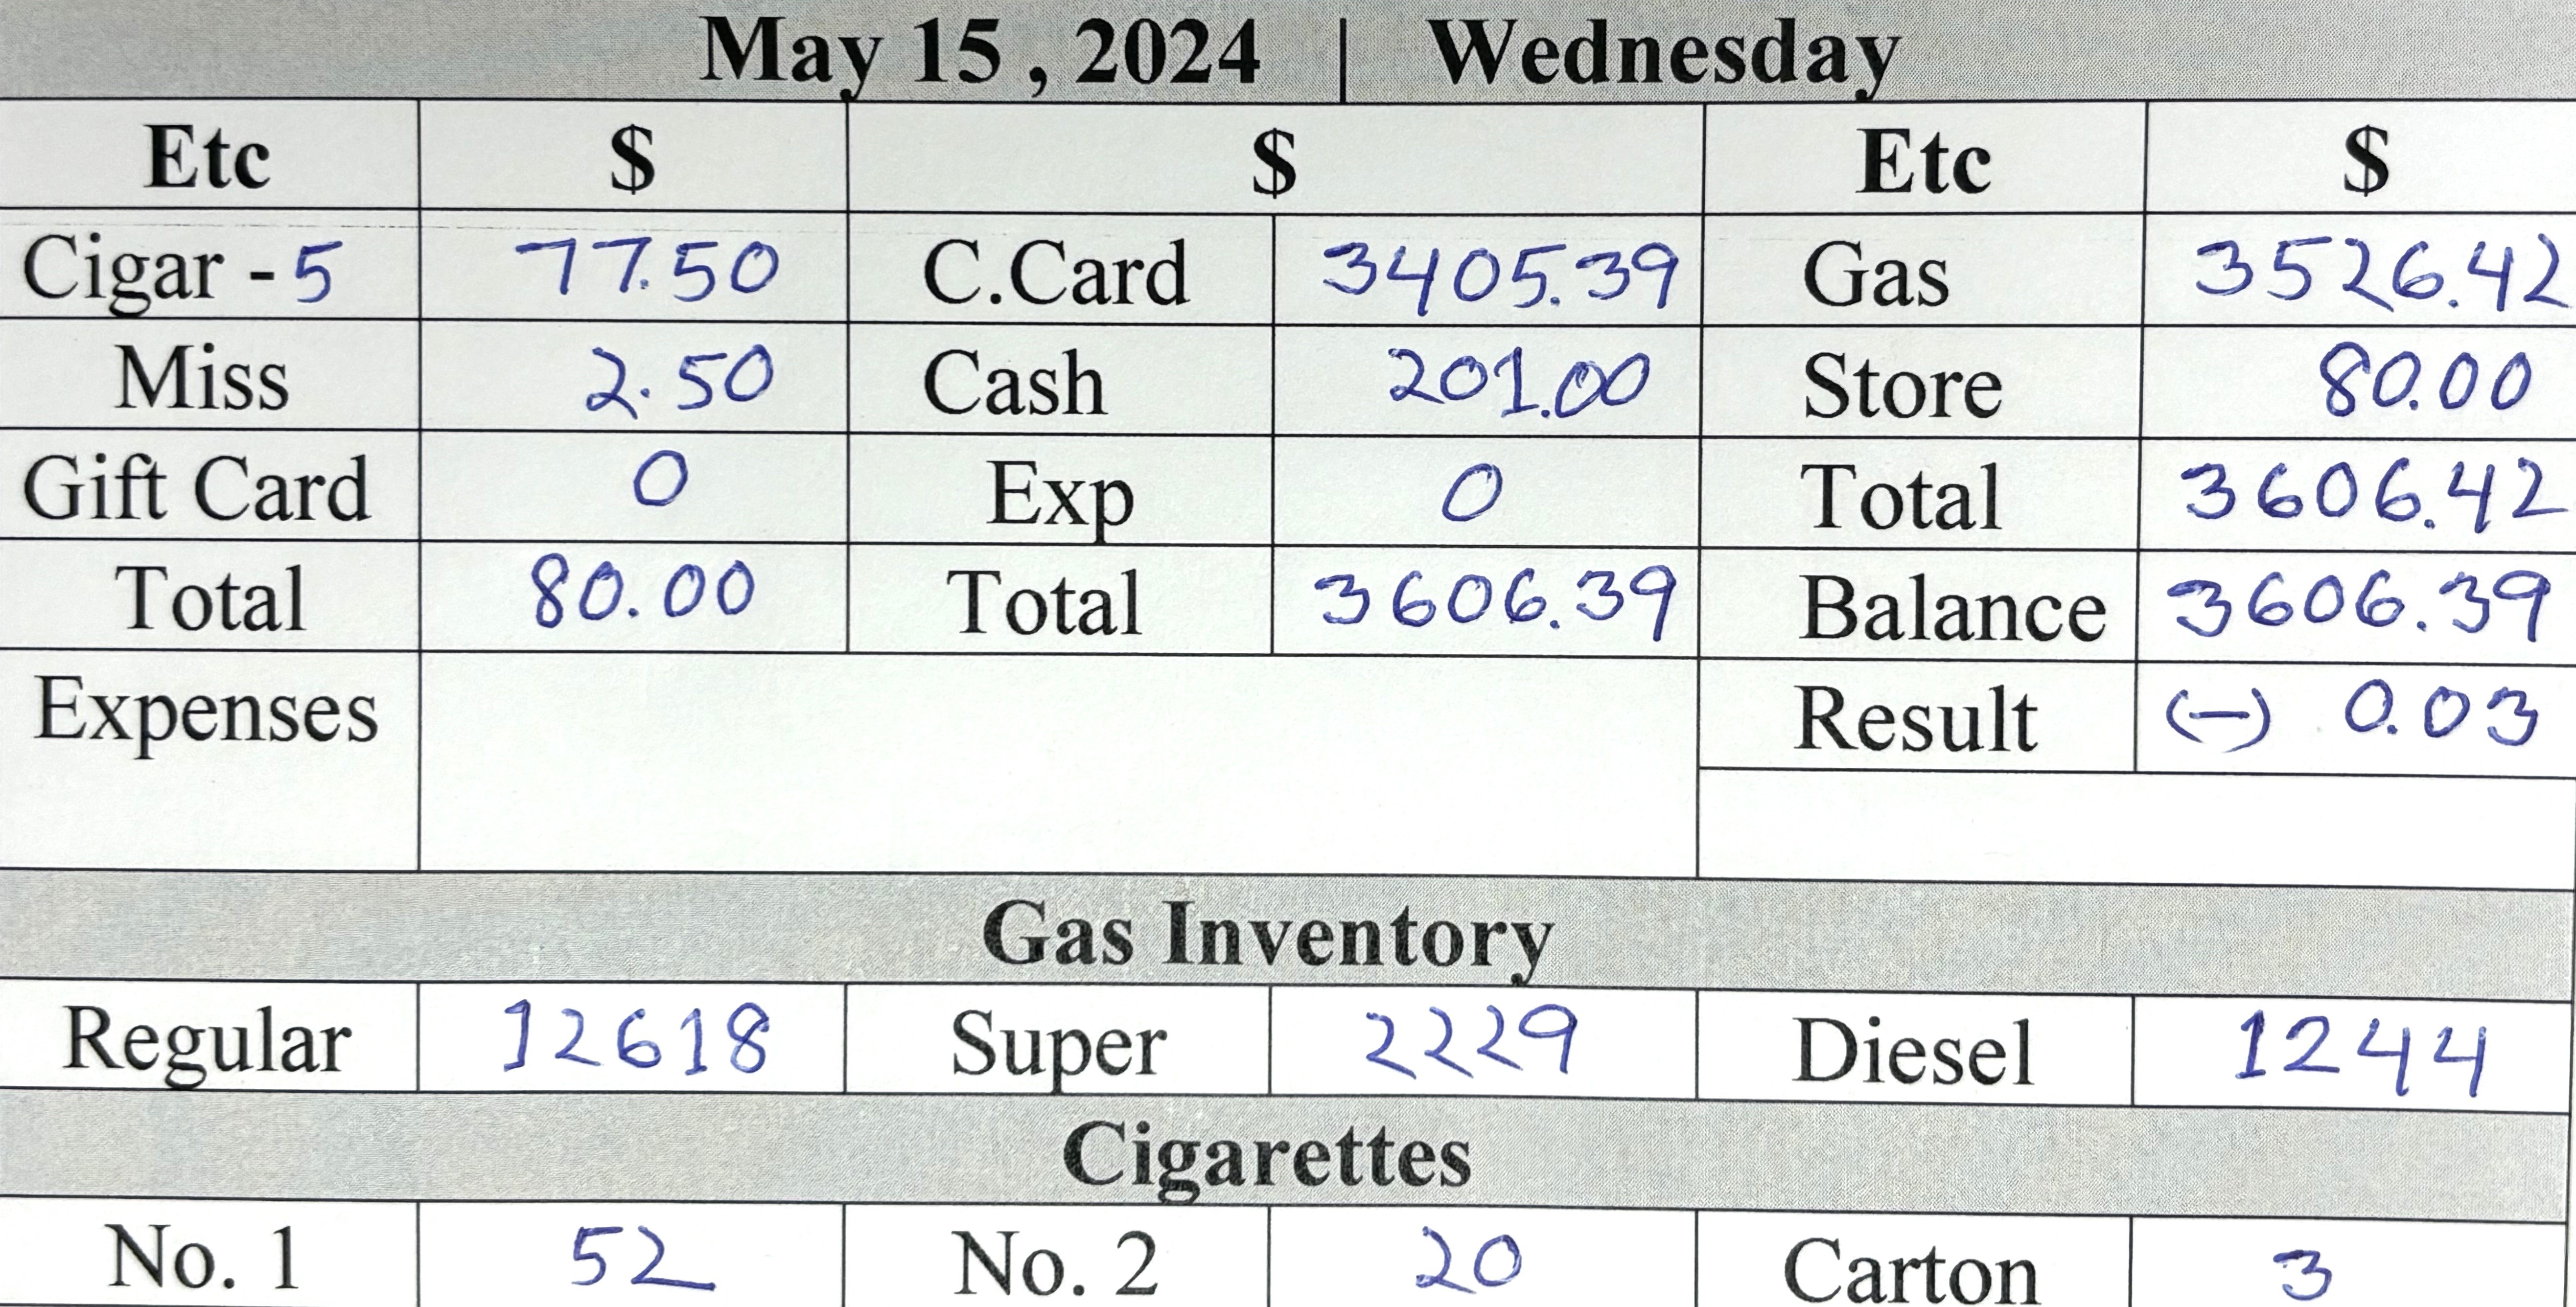 May 15 , 2024 | Wednesday
Etc $ $ Etc $
Cigar - 5 77.50 C.Card 3405.39 Gas 3526.42
Miss 2.50 Cash 201.00 Store 80.00
Gift Card 0 Exp 0 Total 3606.42
Total 80.00 Total 3606.39 Balance 3606.39
Expenses Result (-) 0.03
Gas Inventory
Regular 12618 Super 2229 Diesel 1244
Cigarettes
No. 1 52 No. 2 20 Carton 3